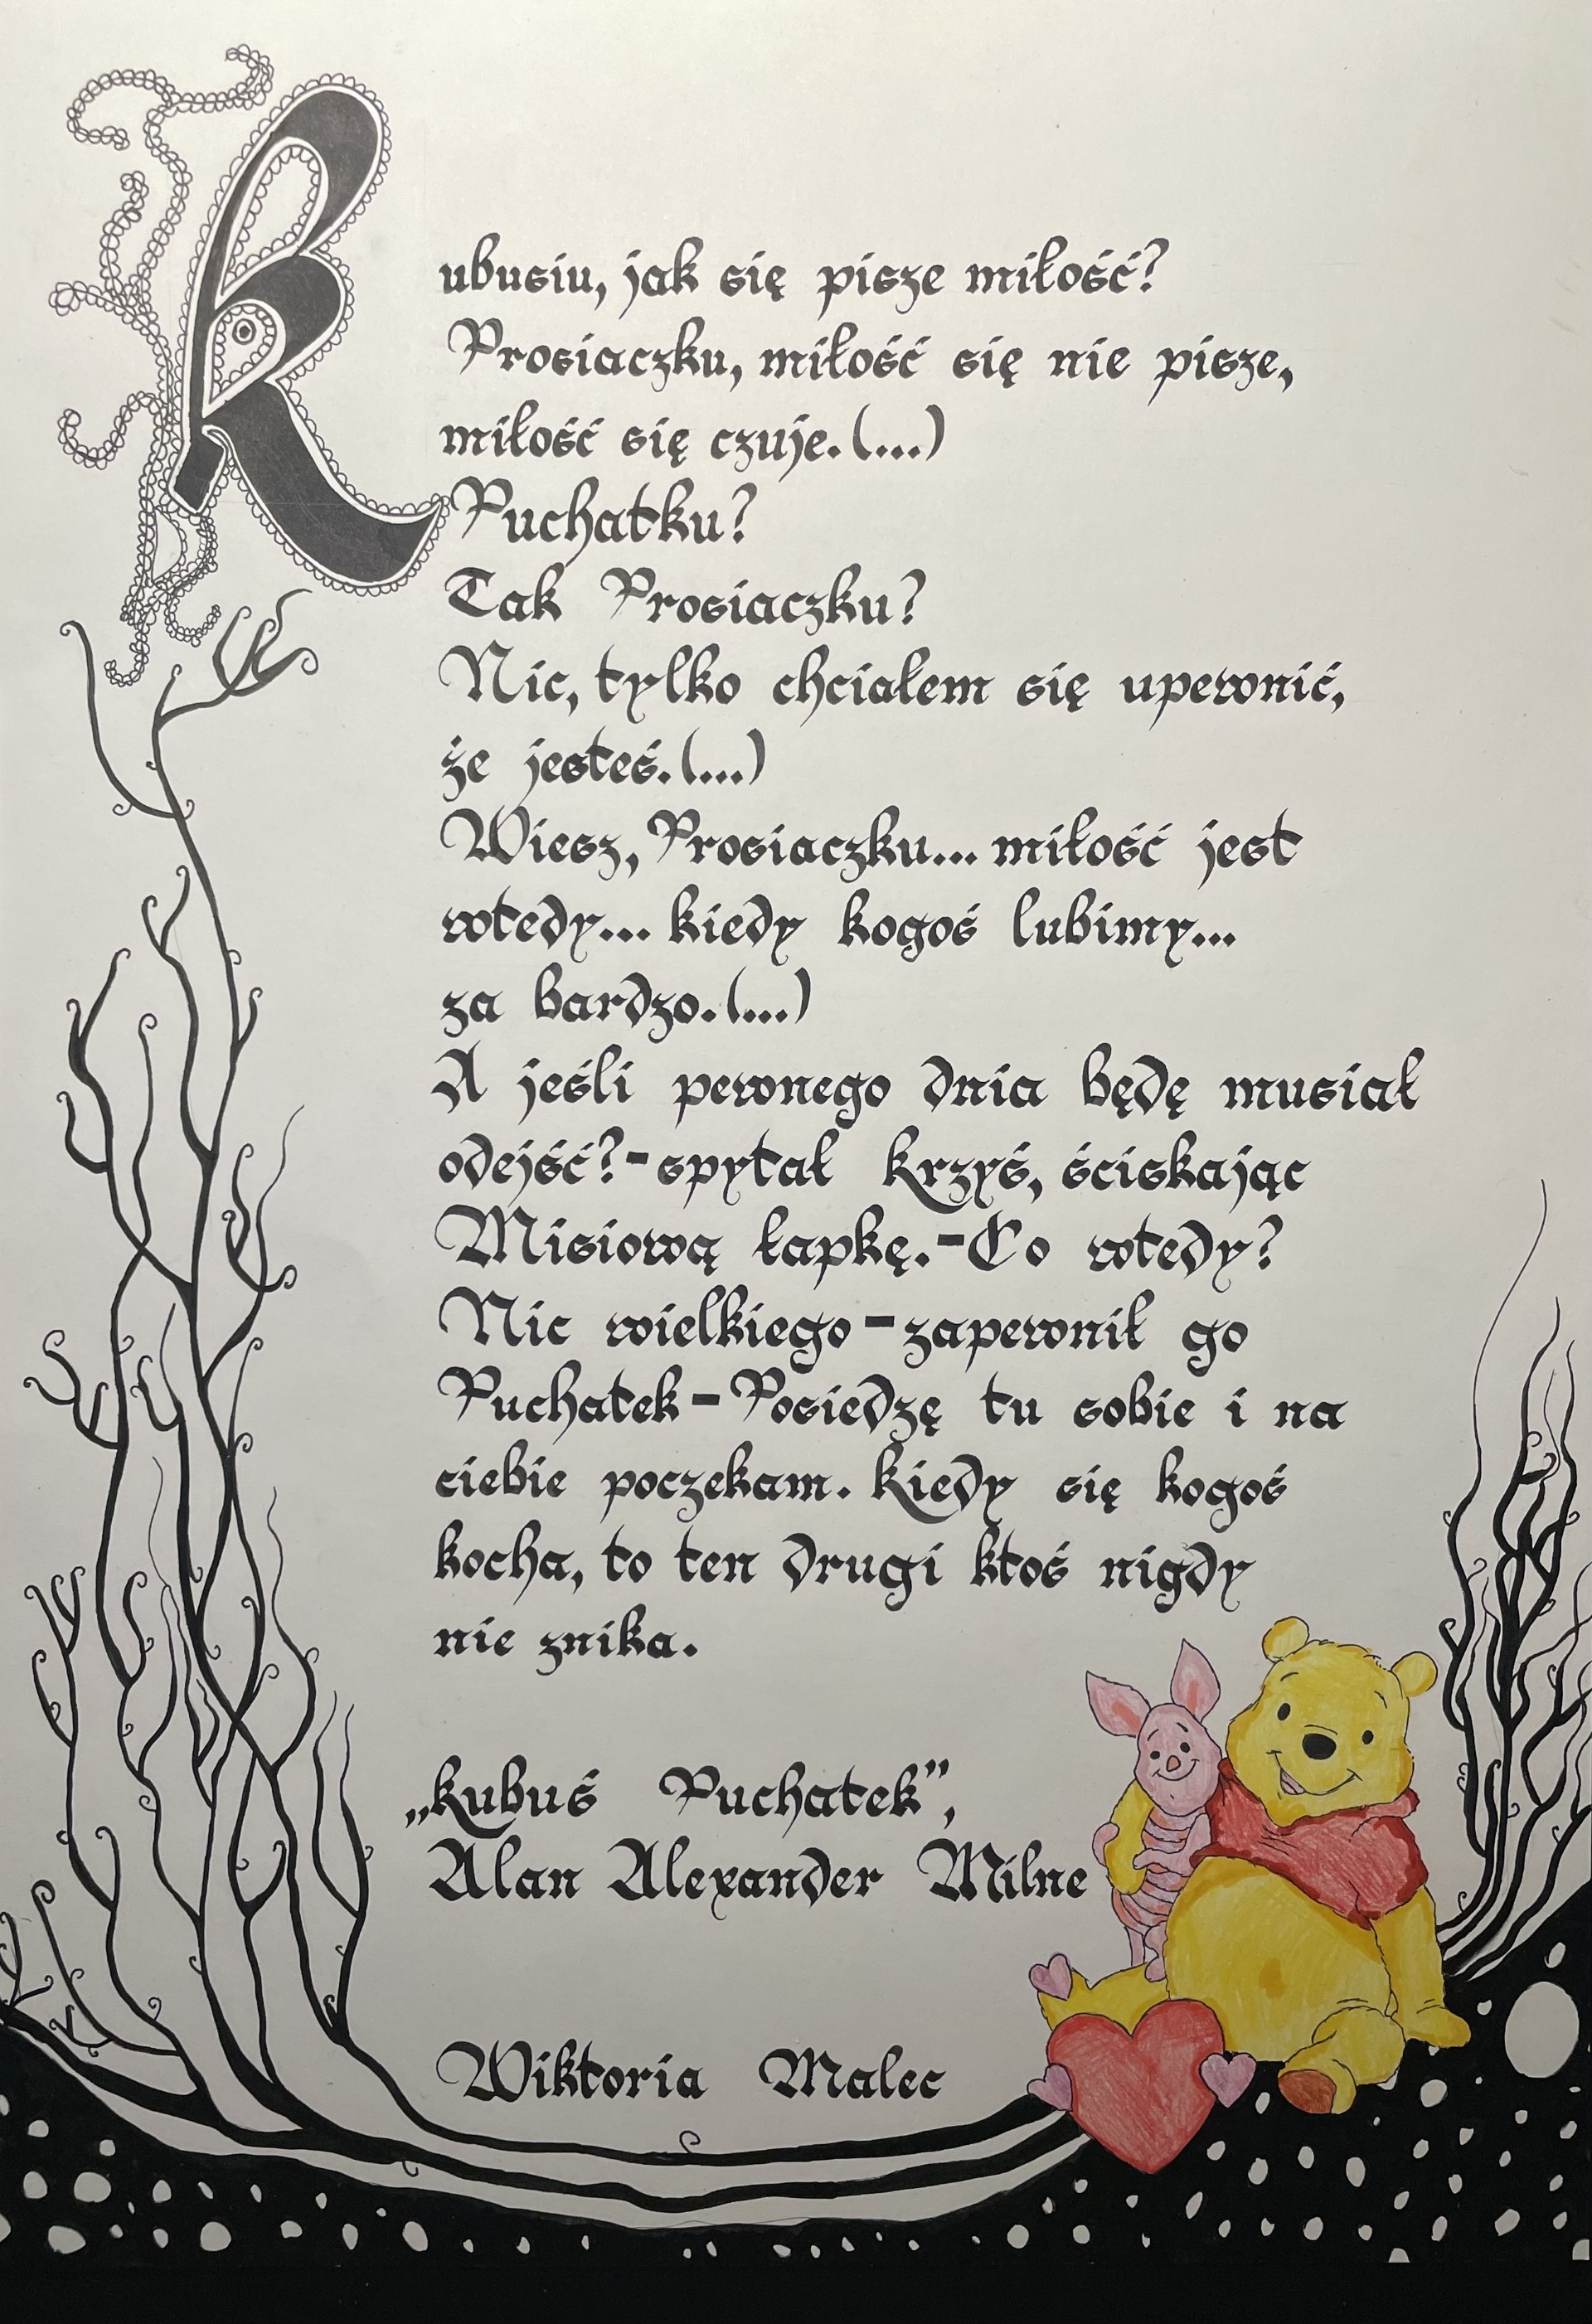 Kubusiu, jak się pisze miłość?
Prosiaczku, miłość się nie pisze,
miłość się czuje.(...)
Puchatku?
Tak Prosiaczku?
Nic, tylko chciałem się upewnić,
że jesteś.(...)
Wiesz, Prosiaczku... miłość jest
wtedy... kiedy kogoś lubimy...
za bardzo.(...)
A jeśli pewnego dnia będę musiał
odejść?-spytał Krzyś, ściskając
Misiową łapkę.-Co wtedy?
Nic wielkiego-zapewnił go
Puchatek-Posiedzę tu sobie i na
ciebie poczekam. Kiedy się kogoś
kocha, to ten drugi ktoś nigdy
nie znika.
„Kubuś Puchatek”,
Alan Alexander Milne
Wiktoria Malec